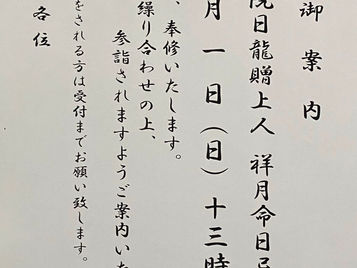 御案内
院日龍贈上人 祥月命日忌
月一日(日)十三時
、奉修いたします。
繰り合わせの上、
参詣されますようご案内いた
をされる方は受付までお願い致します。
各位